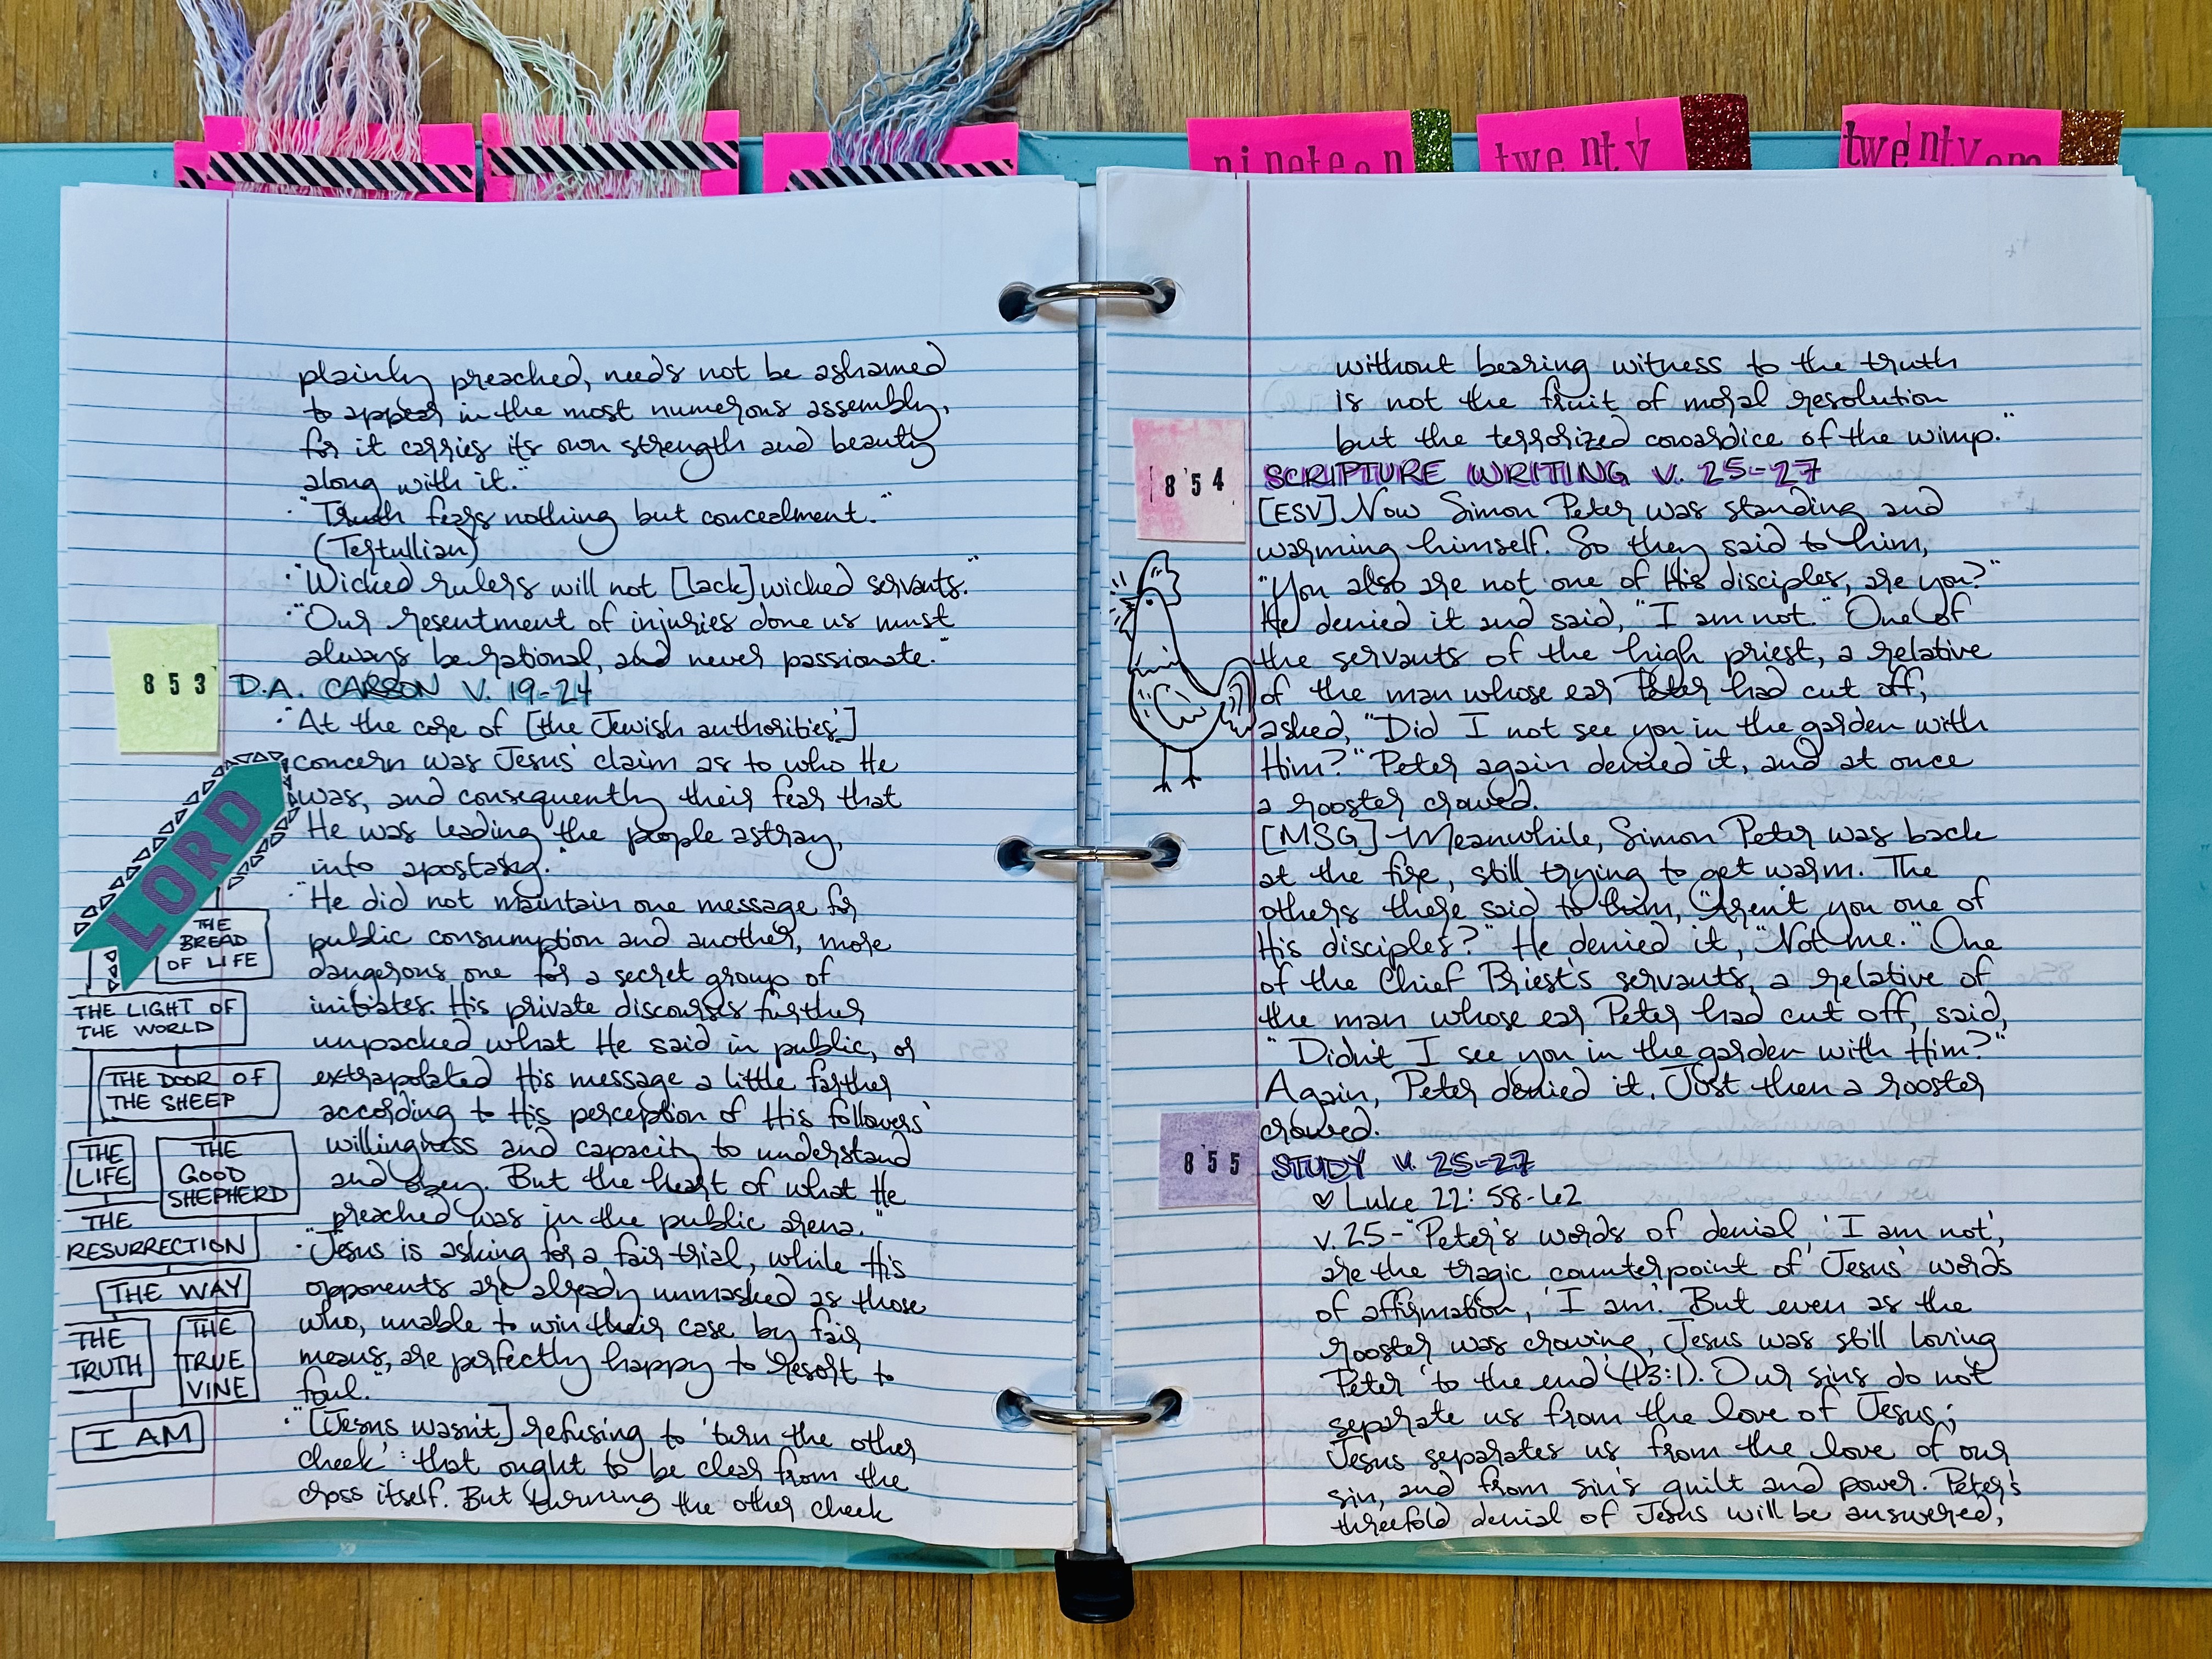 nineteen
twenty
twenty one
plainly preached, needs not be ashamed
to appear in the most numerous assembly,
for it carries its own strength and beauty
along with it."
· "Truth fears nothing but concealment."
(Tertullian)
· "Wicked rulers will not [lack] wicked servants."
· "Our resentment of injuries done us must
always be rational, and never passionate."
853
D.A. CARSON V. 19-24
· "At the core of [the Jewish authorities']
concern was Jesus' claim as to who He
was, and consequently their fear that
He was leading the people astray,
into apostasy.
· "He did not maintain one message for
public consumption and another, more
dangerous one for a secret group of
initiates. His private discourses further
unpacked what He said in public, or
extrapolated His message a little farther
according to His perception of His followers'
willingness and capacity to understand
and obey. But the heart of what He
preached was in the public arena."
· "Jesus is asking for a fair trial, while His
opponents are already unmasked as those
who, unable to win their case by fair
means, are perfectly happy to resort to
foul."
· "[Jesus wasn't] refusing to 'turn the other
cheek': that ought to be clear from the
cross itself. But turning the other cheek
LORD
THE
BREAD
OF LIFE
THE LIGHT OF
THE WORLD
THE DOOR OF
THE SHEEP
THE
LIFE
THE
GOOD
SHEPHERD
THE
RESURRECTION
THE WAY
THE
TRUTH
THE
TRUE
VINE
I AM
without bearing witness to the truth
is not the fruit of moral resolution
but the terrorized cowardice of the wimp."
854
SCRIPTURE WRITING V. 25-27
[ESV] Now Simon Peter was standing and
warming himself. So they said to him,
"You also are not one of His disciples, are you?"
He denied it and said, "I am not." One of
the servants of the high priest, a relative
of the man whose ear Peter had cut off,
asked, "Did I not see you in the garden with
Him?" Peter again denied it, and at once
a rooster crowed.
[MSG] Meanwhile, Simon Peter was back
at the fire, still trying to get warm. The
others there said to him, "Aren't you one of
His disciples?" He denied it, "Not me." One
of the Chief Priest's servants, a relative of
the man whose ear Peter had cut off, said,
"Didn't I see you in the garden with Him?"
Again, Peter denied it. Just then a rooster
crowed.
855
STUDY V. 25-27
♡ Luke 22:58-62
v. 25 - "Peter's words of denial, 'I am not',
are the tragic counterpoint of Jesus' words
of affirmation, 'I am'. But even as the
rooster was crowing, Jesus was still loving
Peter 'to the end' (13:1). Our sins do not
separate us from the love of Jesus;
Jesus separates us from the love of our
sin, and from sin's guilt and power. Peter's
threefold denial of Jesus will be answered,